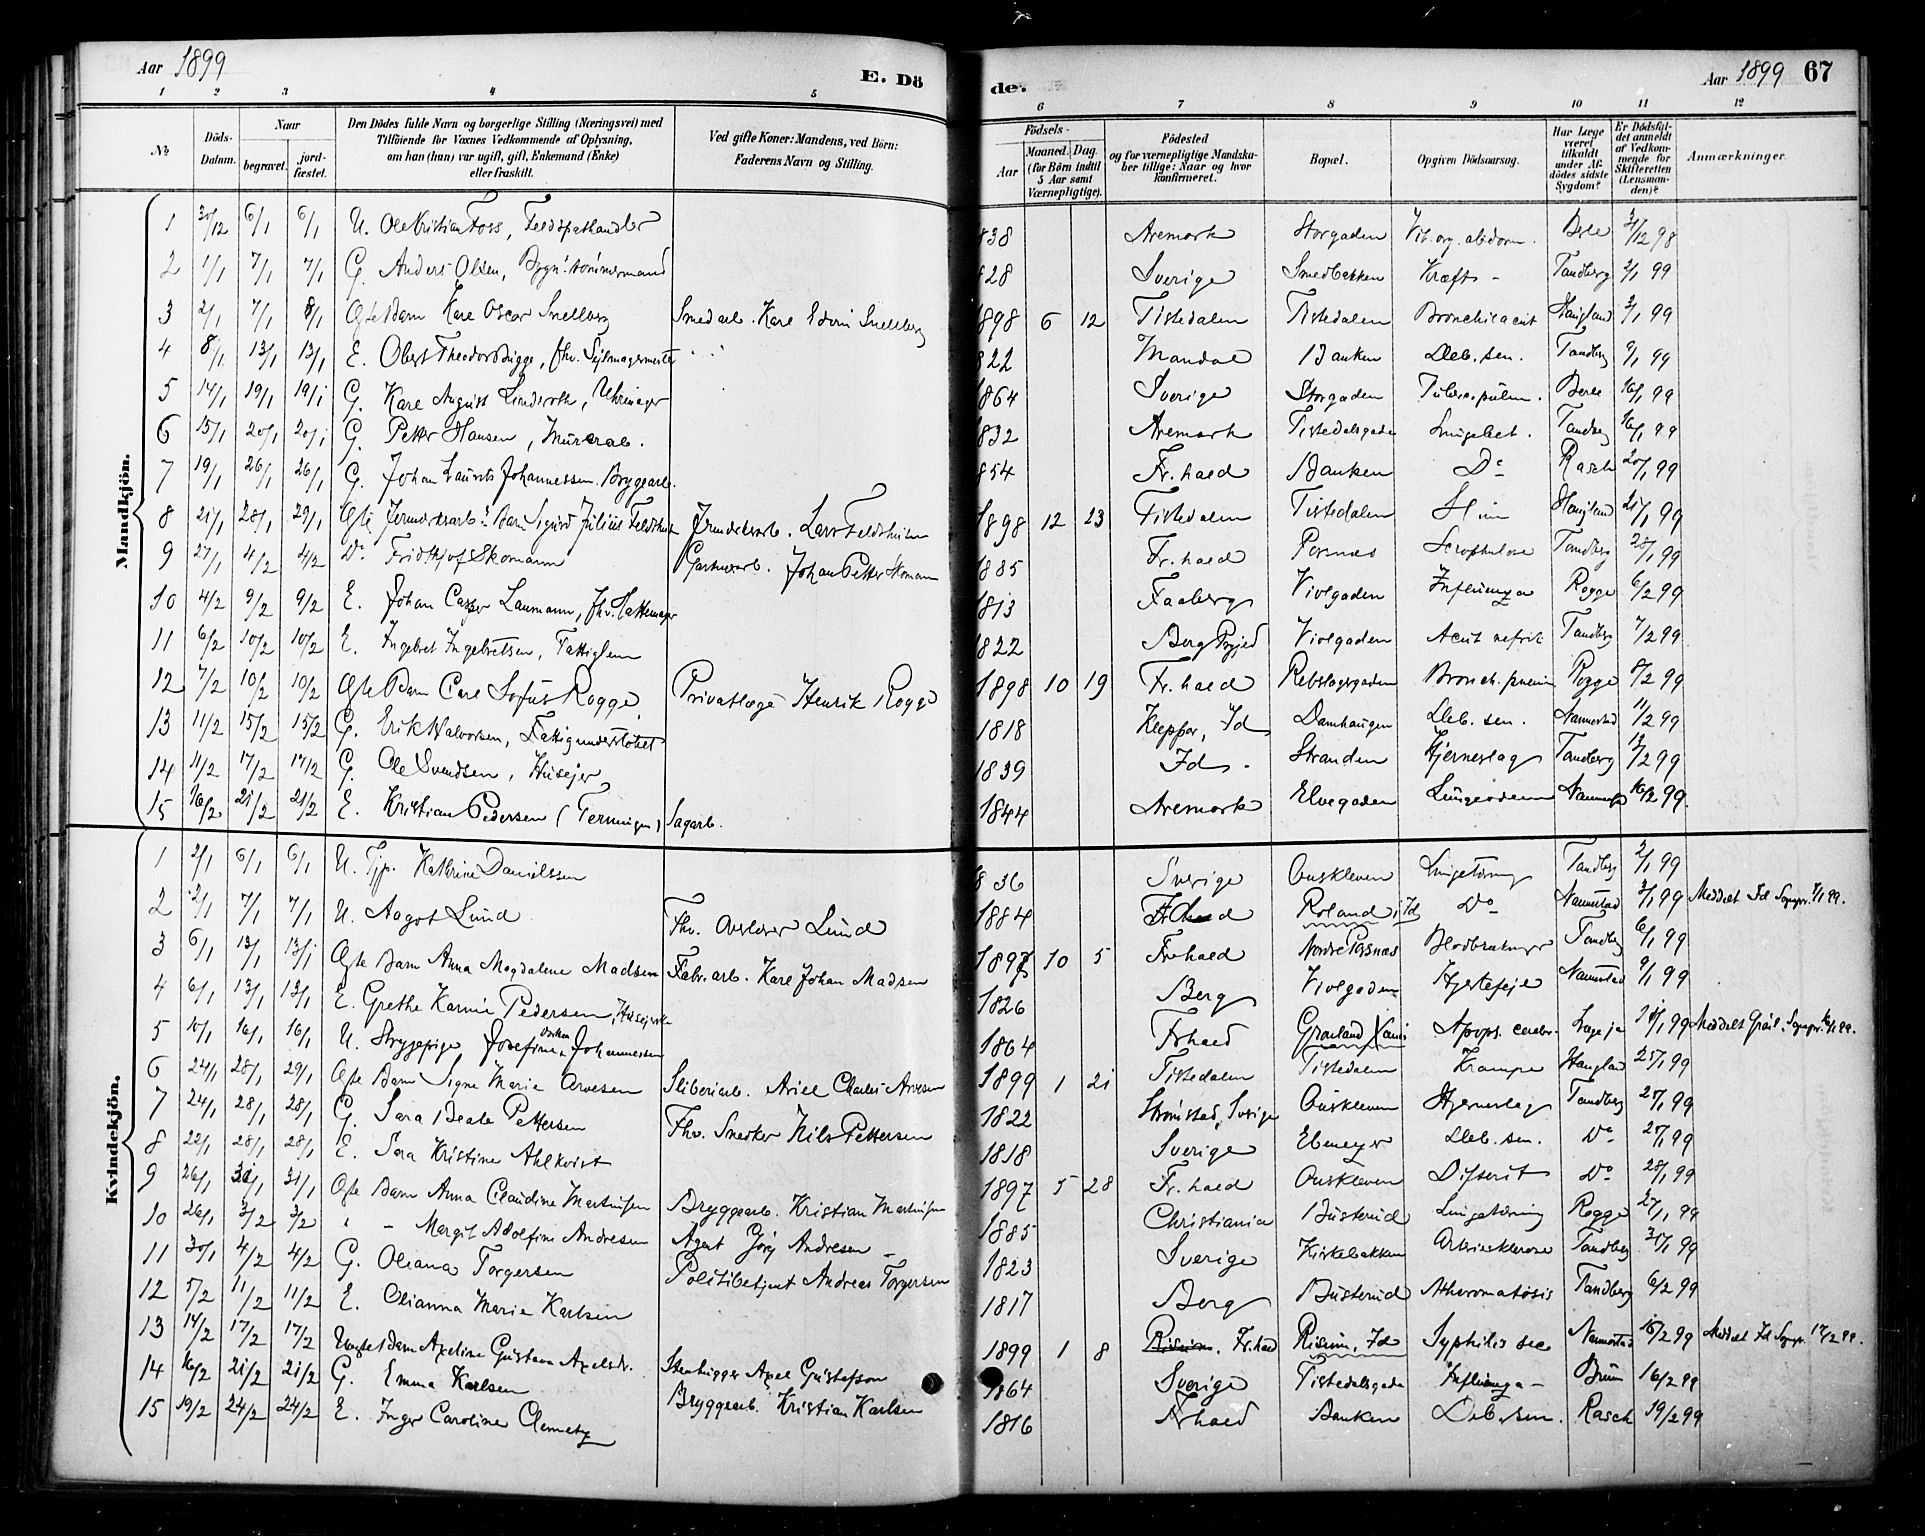 Aar 1899 E. Dö
de. Aar 1899 67
1 2 3 4 5 6 7 8 9 10 11 12
№ Döds-Datum. Naar begravet. jordfæstet. Den Dödes fulde Navn og borgerlige Stilling (Næringsvei) med Tilföiende for Voxnes Vedkommende af Oplysning, om han (hun) var ugift, gift, Enkemand (Enke) eller fraskilt. Ved gifte Koner: Mandens, ved Börn: Faderens Navn og Stilling. Födsels- Aar Maaned. Dag. (for Börn indtil 5 Aar samt Værnepligtige). Födested og for værnepligtige Mandskaber tillige: Naar og hvor konfirmeret. Bopæl. Opgiven Dödsaarsag. Har Læge været tilkaldt under Afdödes sidste Sygdom? Er Dödsfaldet anmeldt af Vedkommende for Skifteretten (Lensmanden)? Anmærkninger.
Mandkjön.
1 30/12 6/1 6/1 U. Ole Kristian Foss, Feldspathandler 838 Aremark Storgaden Vit. org. abdom. Berle 31/12 98
2 1/1 7/1 7/1 G. Anders Olsen, Bygn.tømmermand 828 Sverige Smedbakken Kræft Tandberg 2/1 99
3 2/1 7/1 8/1 Ægte Barn Karl Oscar Snellberg Smedarb. Karl Edvin Snellberg 1898 6 12 Tistedalen Tistedalen Bronchit acut Haugland 3/1 99
4 8/1 13/1 13/1 E. Obert Theodor Bugge, fhv. Sejlmagermester 822 Mandal Banken Deb. sen. Tandberg 9/1 99
5 14/1 19/1 19/1 G. Karl August Linderoth, Uhrmager 1864 Sverige Storgaden Tuberc. pulm. Berle 16/1 99
6 15/1 20/1 20/1 G. Petter Hansen, Murerarb. 832 Aremark Tistedalsgaden Lungebet. Tandberg 16/1 99
7 19/1 26/1 26/1 G. Johan Laurits Johannessen Bryggearb. 854 Fr.hald Banken Do Rasch 20/1 99
8 21/1 28/1 29/1 Ægte Barn Sigurd Julius Feldthusen Lars Feldthusen 1898 12 23 Tistedalen Tistedalen Haugland 21/1 99
9 27/1 4/2 4/2 Do Fridthjof Skomann Gartnerarb. Johan Petter Skomann 1885 Fr.hald Posnæs Scrophulose Tandberg 28/1 99
10 4/2 9/2 9/2 E. Johan Casper Laumann, fhv. Hattemager 1813 Faaberg Violgaden Influenza Rogge 6/2 99
11 6/2 10/2 10/2 E. Ingebret Ingebretsen, Fattiglem 1822 Berg Violgaden Acut nefrit Tandberg 7/2 99
12 7/2 10/2 10/2 Ægte Barn Carl Sofus Rogge Privatlæge Henrik Rogge 1898 10 19 Fr.hald Rebslagergaden Bronch. pneum Rogge 8/2 99
13 11/2 15/2 15/2 G. Erik Halvorsen, Fattigunderstøttet 1818 Kleppar, Id Damhaugen Deb. sen. Nannestad 11/2 99
14 11/2 17/2 17/2 G. Ole Svendsen, Husejer 1839 Id Stranden Hjerneslag Tandberg 13/2 99
15 16/2 21/2 21/2 E. Kristian Pedersen (Terningen) Sagarb. 1844 Aremark Elvegaden Lungeødem Nannestad 16/2 99.
Kvindekjön.
1 2/1 6/1 6/1 U. Tjp. Kathrine Danielssen 836 Sverige Ouskleven Lungetæring Tandberg 2/1 99
2 2/1 7/1 7/1 U. Aagot Lund Fhv. Overlærer Lund 1884 Fr.hald Roland, Id Do Nannestad 3/1 99 Meddelt Id Sognepr. 7/1 99.
3 6/1 13/1 13/1 Ægte Barn Anna Magdalene Madsen Fabr.arb. Karl Johan Madsen 1897 10 5 Fr.hald Nordre Posnæs Tandberg 6/1 99
4 6/1 13/1 13/1 E. Grethe Karine Pedersen, 1826 Berg Violgaden Hjertefejl Nannestad 9/1 99
5 10/1 16/1 16/1 U. Strygepige Josefine Johannessen 1864 Fr.hald Grønland Apopl. cerebr. Læge ja 99 Meddelt Sognepr. 16/1 99.
6 24/1 28/1 29/1 Ægte Barn Signe Marie Arvesen Sliberiarb. Ariel Charles Arvesen 1899 1 21 Tistedalen Tistedalen Krampe Haugland 25/1 99
7 24/1 28/1 28/1 G. Sara Beate Pettersen Fhv. Snedker Nils Pettersen 1822 Strömstad, Sverige Ouskleven Hjerneslag Tandberg 25/1 99
8 22/1 28/1 28/1 E. Sara Kristine Ahlkvist 1818 Sverige Deb. sen. Do 25/1 99
9 26/1 31/1 31/1 Ægte Barn Anna Claudine Martinsen Bryggearb. Kristian Martinsen 1897 5 28 Fr.hald Ouskleven Difterit Do 28/1 99
10 26/1 3/2 3/2 " - Margit Adolfine Andresen Agent Andresen 1885 Christiania Busterud Lungetæring Rogge 27/1 99
11 30/1 4/2 4/2 G. Oliana Torgersen Politibetjent Andreas Torgersen 1823 Sverige Kirkebakken Arteriesklerose Tandberg 31/1 99
12 5/2 11/2 11/2 E. Olianna Marie Karlsen 1817 Berg Busterud Atheromatosis Tandberg 6/2 99
13 14/2 17/2 17/2 Uægte Barn Axeline Gustava Axelsdr. Stenhugger Axel Gustafson 1899 1 8 Risum. Fr.hald Risum, Id Syphilis sec Nannestad 15/2 99 Meddelt Id Sognepr. 17/2 99.
14 16/2 21/2 21/2 G. Emma Karlsen Bryggearb. Kristian Karlsen 1864 Sverige Tistedalsgade Influenza Bruun 16/2 99
15 19/2 24/2 24/2 E. Inger Caroline Clemetz 1816 Fr.hald Banken Deb. sen. Rasch 19/2 99